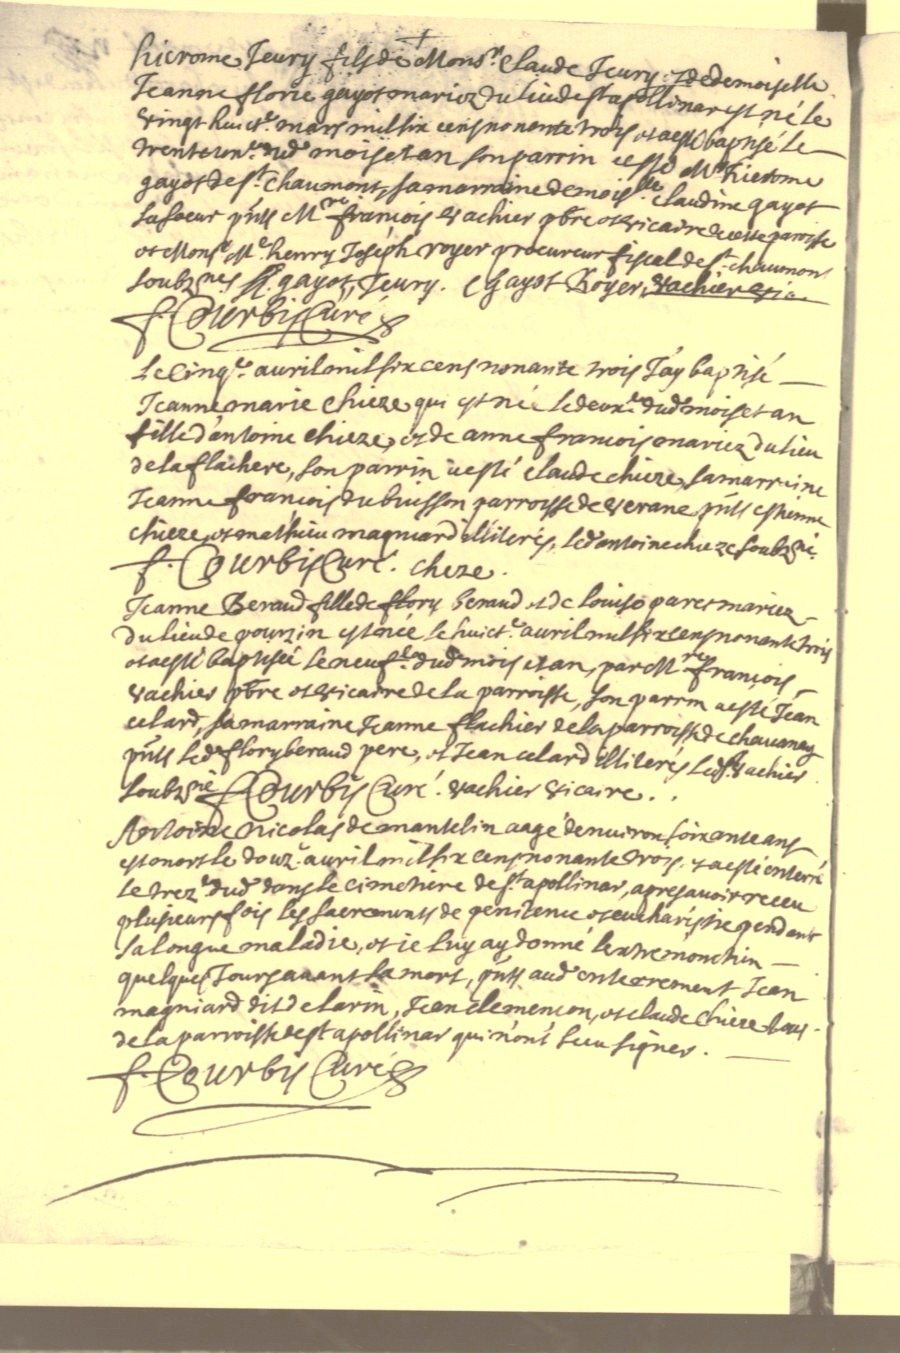 hierome Jeury fils de Monsr. Claude Jeury, & de demoiselle
Jeanne florie gayot mariez du lieu de st apollinar est né le
vingt huict.e mars mil six cens nonante trois et a esté baptisé le
trente un.e dud. mois et an son parrin a esté Mr. hierome
gayot de st. Chaumont, sa marraine demois.lle claudine gayot
sa soeur pñts M.re françois vachier pbre et vicaire de cette paroisse
et Mons.r Me. henry Joseph royer procureur fiscal de st. chaumont
soubz.nes gayot, Jeury. C Gayot Royer, vachier vic.
f. Courbis Curé
Le Cinq.e auril mil six cens nonante trois J'ay baptisé
Jeanne marie chieze qui est née le deux.e dud. mois et an
fille d'antoine chieze, et de anne francois mariez du lieu
de la flachere, son parrin a esté claude chieze, sa marraine
Jeanne francois du buisson parroisse de verane pñts estienne
chieze, et mathieu magniard illiterés, led. antoine chieze soubz.né.
f. Courbis Curé. cheze.
Jeanne Beraud fille de flory beraud et de louise paret mariez
du lieu de pourzin est née le huict.e auril mil six cens nonante trois
et a esté baptisée le neuf.e dud. mois et an, par M.re françois
vachier pbre et vicaire de la parroisse, son parrin a esté Jean
celard, sa marraine Jeanne flachier de la parroisse de chavanay
pñts led. flory beraud pere, et Jean celard illiterés led. sr. vachier
soubz.né f. Courbis Curé. vachier vicaire.
Antoine Nicolas de mantelin aagé denuiron soixante ans
est mort le douz.e auril mil six cens nonante trois, et a esté enterré
le trez.e dud. dans le cimetiere de st. apollinar, apres avoir receu
plusieurs fois les sacrements de penitence et eucharistie pendant
sa longue maladie, et ie luy ay donné l'extremonction
quelques Jours auant sa mort, pñts aud. enterrement Jean
magniard dit delarin, Jean Clemencon, et claude Chieze tous
de la parroisse de st apollinar qui n'ont sceu signer.
f. Courbis Curé